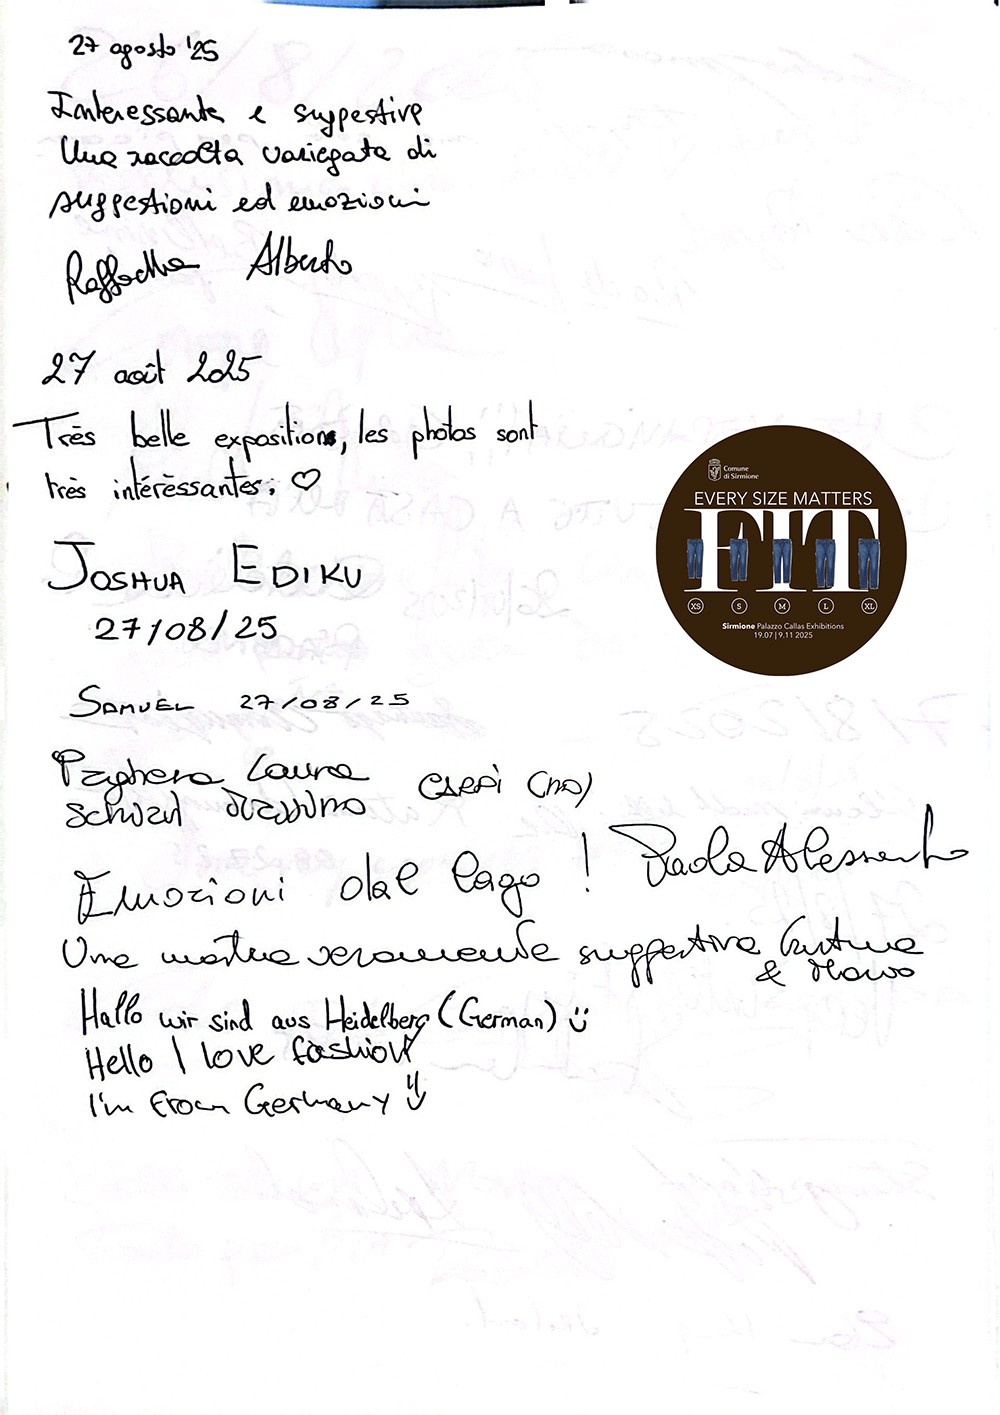 27 agosto '25
Interessante e suggestive
Una raccolta variegata di
suggestioni ed emozioni
Raffaella Alberto
27 août 2025
Très belle expositions, les photos sont
très intérèssantes. ♡
JOSHUA EDIKU
27/08/25
SAMUEL 27/08/25
Paghera Laura
CARPI (MO)
Massimo
Emozioni dal lago ! Paola Alessandro
Una mostra veramente suggestiva
&
Hallo wir sind aus Heidelberg (German) Ü
Hello I love fashion
I'm from Germany
Comune
di Sirmione
EVERY SIZE MATTERS
FIT
XS S M L XL
Sirmione Palazzo Callas Exhibitions
19.07 | 9.11 2025